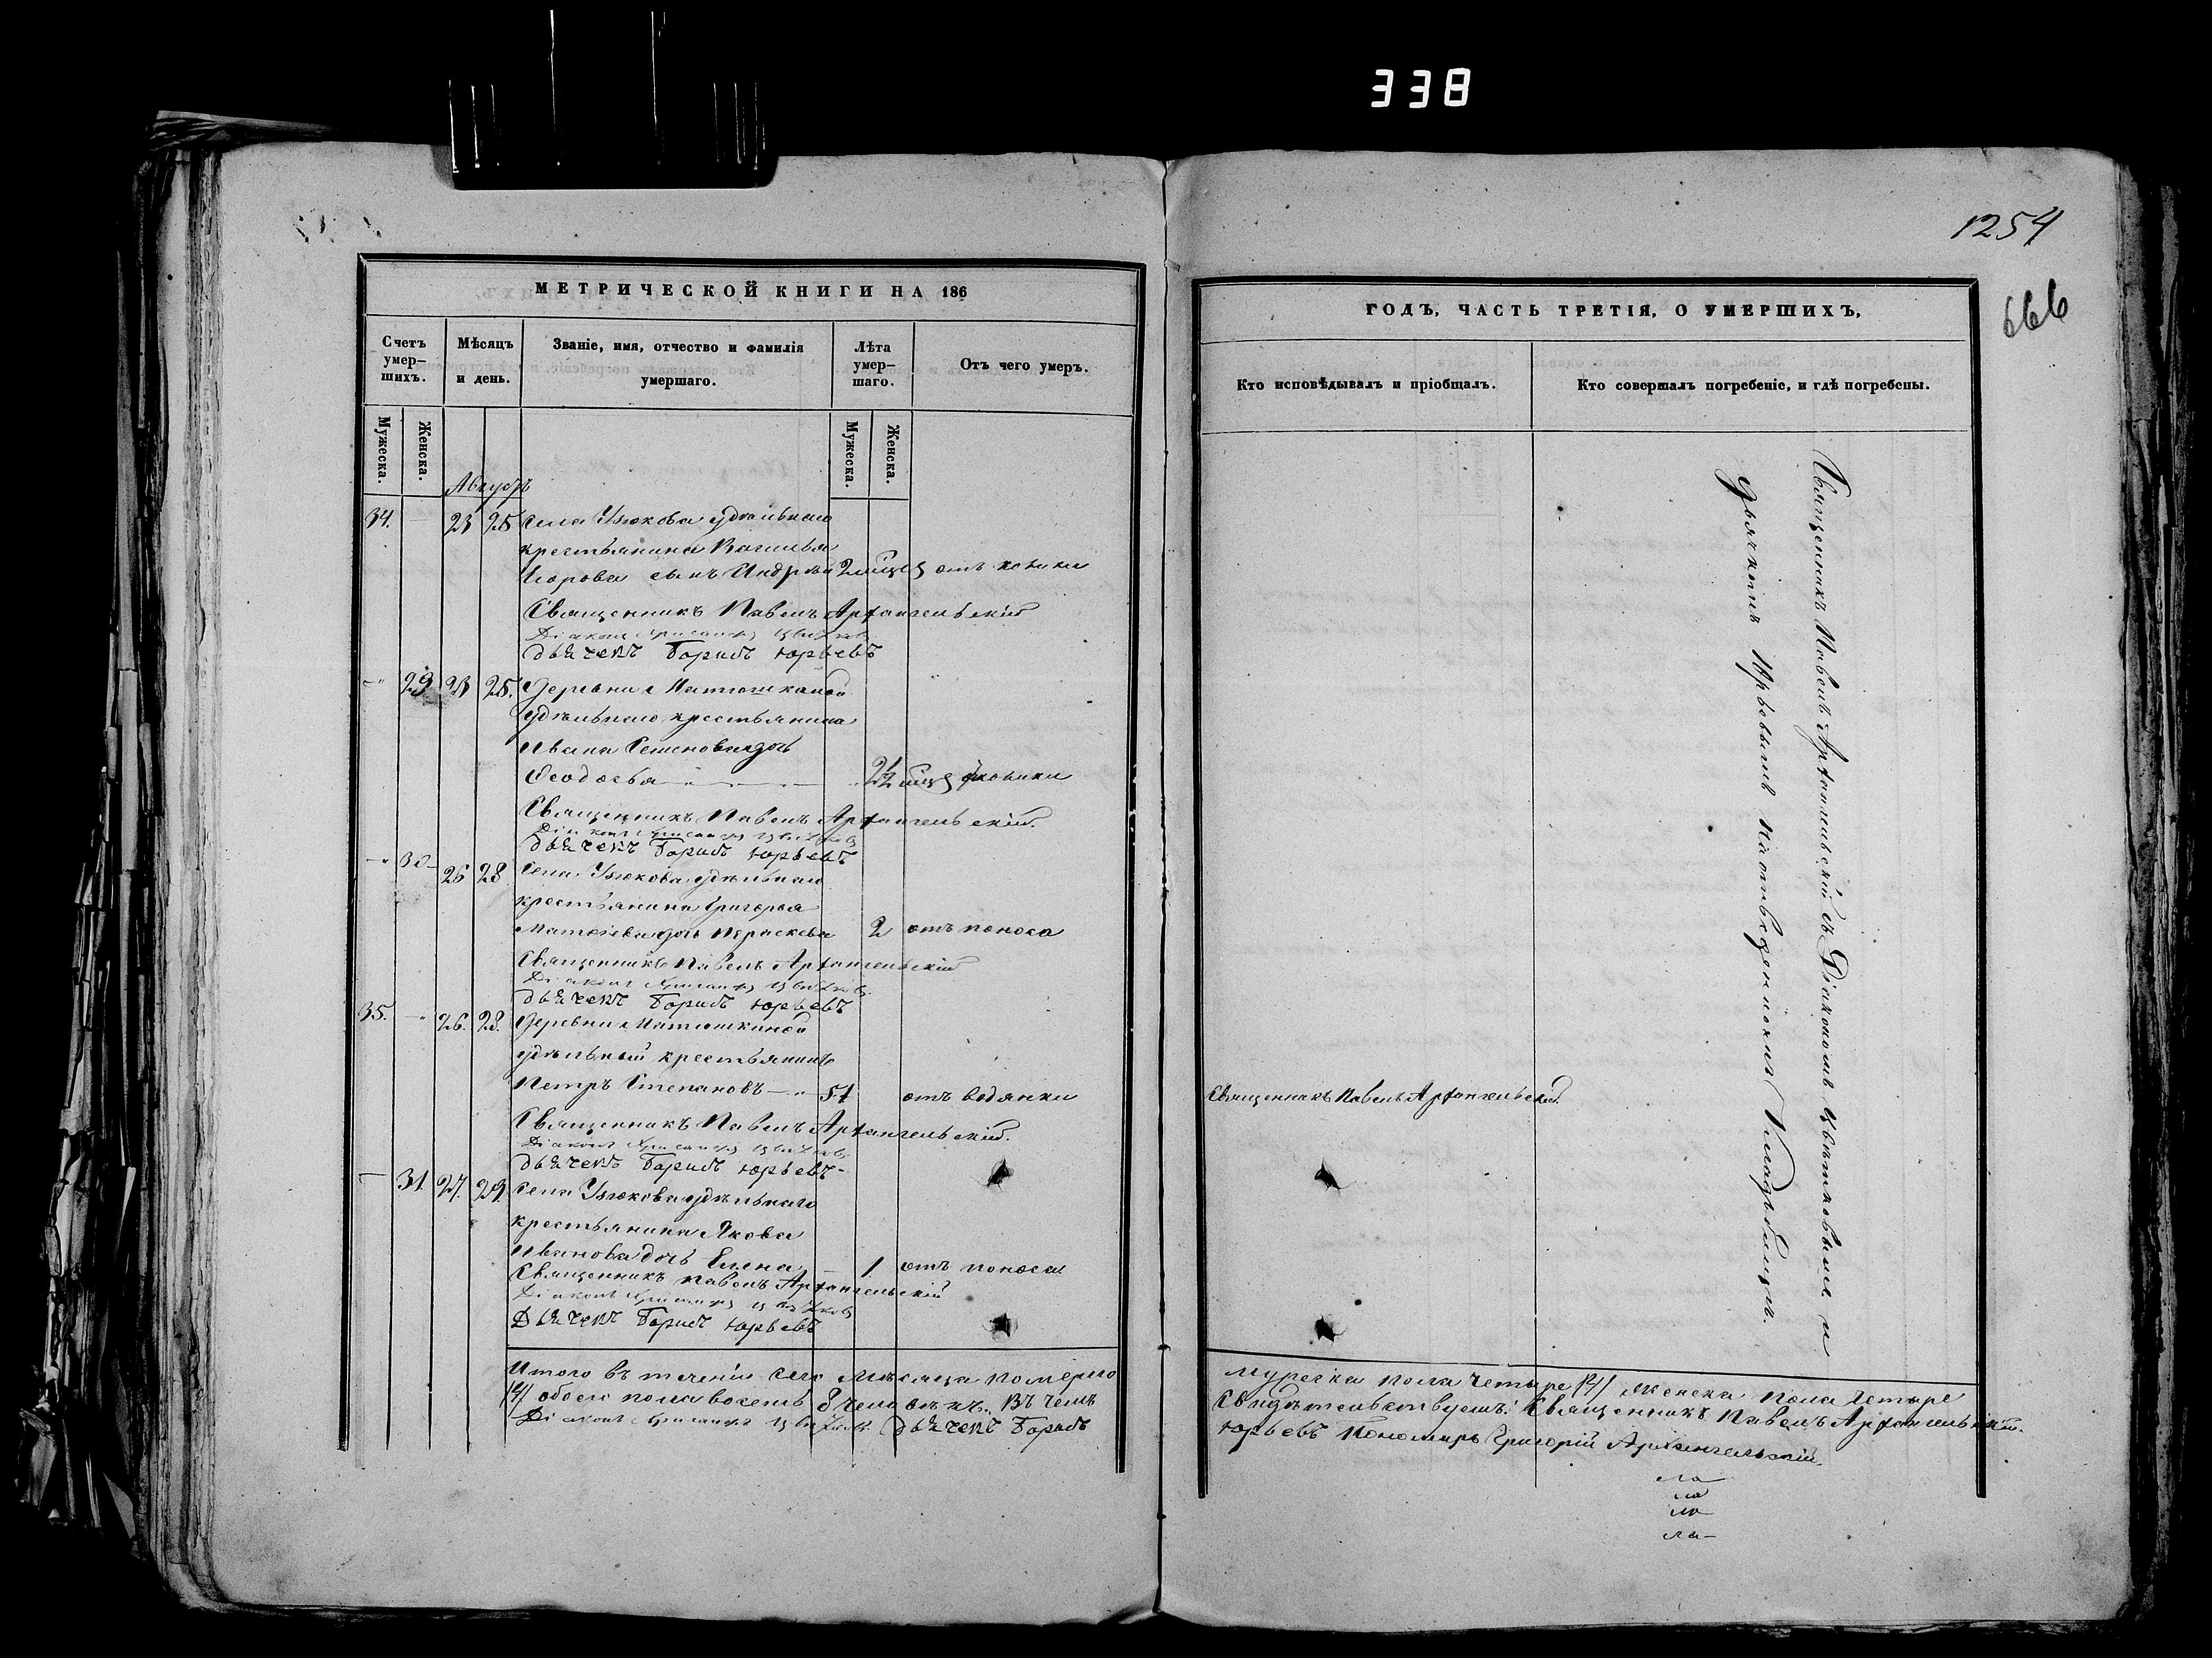 338
1254
666
МЕТРИЧЕСКОЙ КНИГИ НА 186
Счетъ умер-шихъ.
Мужеска.
Женска.
Мѣсяцъ и день.
Званіе, имя, отчество и фамилія умершаго.
Лѣта умер-шаго.
Мужеска.
Женска.
Отъ чего умеръ.
Августъ
34. — 23 25 Села Узюкова удѣльнаго
крестьянина Василья
Егорова сынъ Андрей 2 мѣсц отъ
Священникъ Павелъ Архангельскій
Діаконъ Хрисанфъ Цвѣтковъ
дьячекъ Борисъ Юрьевъ
— 29 23 25. Деревни Матюшкиной
удѣльнаго крестьянина
Ивана Семенова дочь
Ѳеодосья 2½ мѣсц
Священникъ Павелъ Архангельскій.
Діаконъ Хрисанфъ Цвѣтковъ
дьячекъ Борисъ Юрьевъ
— 30 — 26 28 Села Узюкова удѣльнаго
крестьянина Григорья
Матвѣева дочь Параскева 2 отъ поноса
Священникъ Павелъ Архангельскій
Діаконъ Хрисанфъ Цвѣтковъ
дьячекъ Борисъ Юрьевъ
35. — 26. 28. Деревни Матюшкиной
удѣльный крестьянинъ
Петръ Степановъ — 51 отъ водянки
Священникъ Павелъ Архангельскій.
Діаконъ Хрисанфъ Цвѣтковъ
дьячекъ Борисъ Юрьевъ
— 31. 27. 29. Села Узюкова удѣльнаго
крестьянина Якова
Иванова дочь Елена 1 отъ поноса
Священникъ Павелъ Архангельскій
Діаконъ Хрисанфъ Цвѣтковъ
Дьячекъ Борисъ Юрьевъ
Итого въ теченіи сего мѣсяца померло
/4/ обоего пола восемь 8 человѣкъ. Въ чемъ
Діаконъ Хрисанфъ Цвѣтковъ дьячекъ Борисъ
ГОДЪ, ЧАСТЬ ТРЕТІЯ, О УМЕРШИХЪ.
Кто исповѣдывалъ и пріобщалъ.
Кто совершалъ погребеніе, и гдѣ погребены.
Священникъ Павелъ Архангельскій.
Священникъ Павелъ Архангельскій съ Діакономъ Цвѣтковымъ и
дьячкомъ Юрьевымъ на отведенномъ кладбищѣ.
мужеска пола четыре /4/ женска пола четыре
Свидѣтельствуемъ: Священникъ Павелъ Архангельскій.
Юрьевъ Пономарь Григорій Архангельскій.